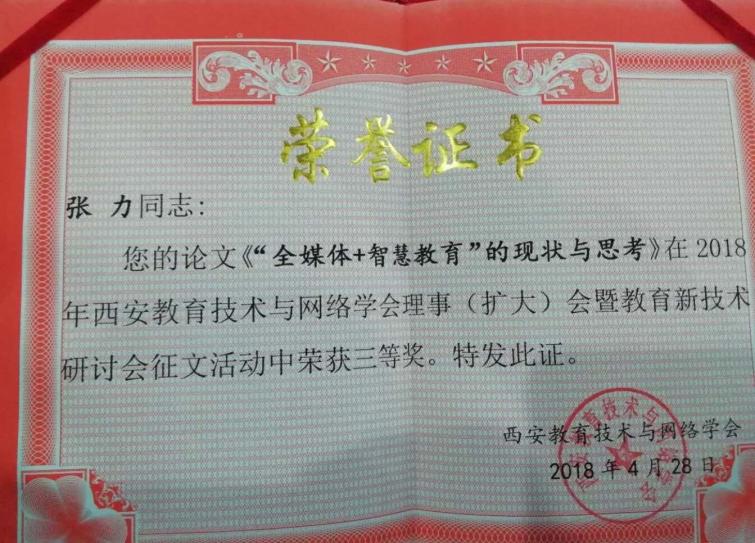 荣誉证书
张 力同志：
您的论文《“全媒体+智慧教育”的现状与思考》在2018
年西安教育技术与网络学会理事（扩大）会暨教育新技术
研讨会征文活动中荣获三等奖。特发此证。
西安教育技术与网络学会
2018年4月28日
西安教育技术与网络学会